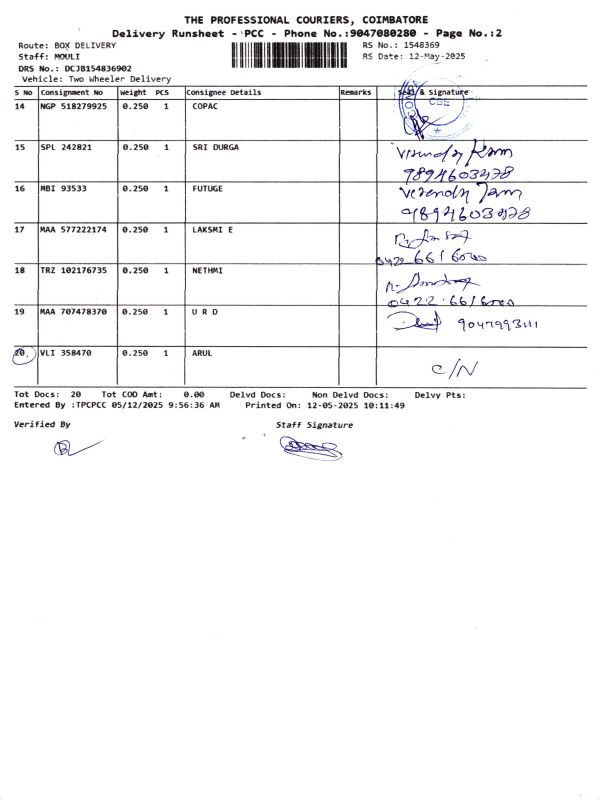 THE PROFESSIONAL COURIERS, COIMBATORE
Delivery Runsheet - PCC - Phone No.:9047080280 - Page No.:2
Route: BOX DELIVERY RS No.: 1548369
Staff: MOULI RS Date: 12-May-2025
DRS No.: DCJB154836902
Vehicle: Two Wheeler Delivery
S No Consignment No Weight PCS Consignee Details Remarks Seal & Signature
14 NGP 518279925 0.250 1 COPAC CBE
15 SPL 242821 0.250 1 SRI DURGA
9894603478
16 MBI 93533 0.250 1 FUTUGE
9894603478
17 MAA 577222174 0.250 1 LAKSMI E
0422 6616000
18 TRZ 102176735 0.250 1 NETHMI
0422.6616000
19 MAA 707478370 0.250 1 U R D 9047993111
20 VLI 358470 0.250 1 ARUL
C/N
Tot Docs: 20 Tot COD Amt: 0.00 Delvd Docs: Non Delvd Docs: Delvy Pts:
Entered By :TPCPCC 05/12/2025 9:56:36 AM Printed On: 12-05-2025 10:11:49
Verified By Staff Signature